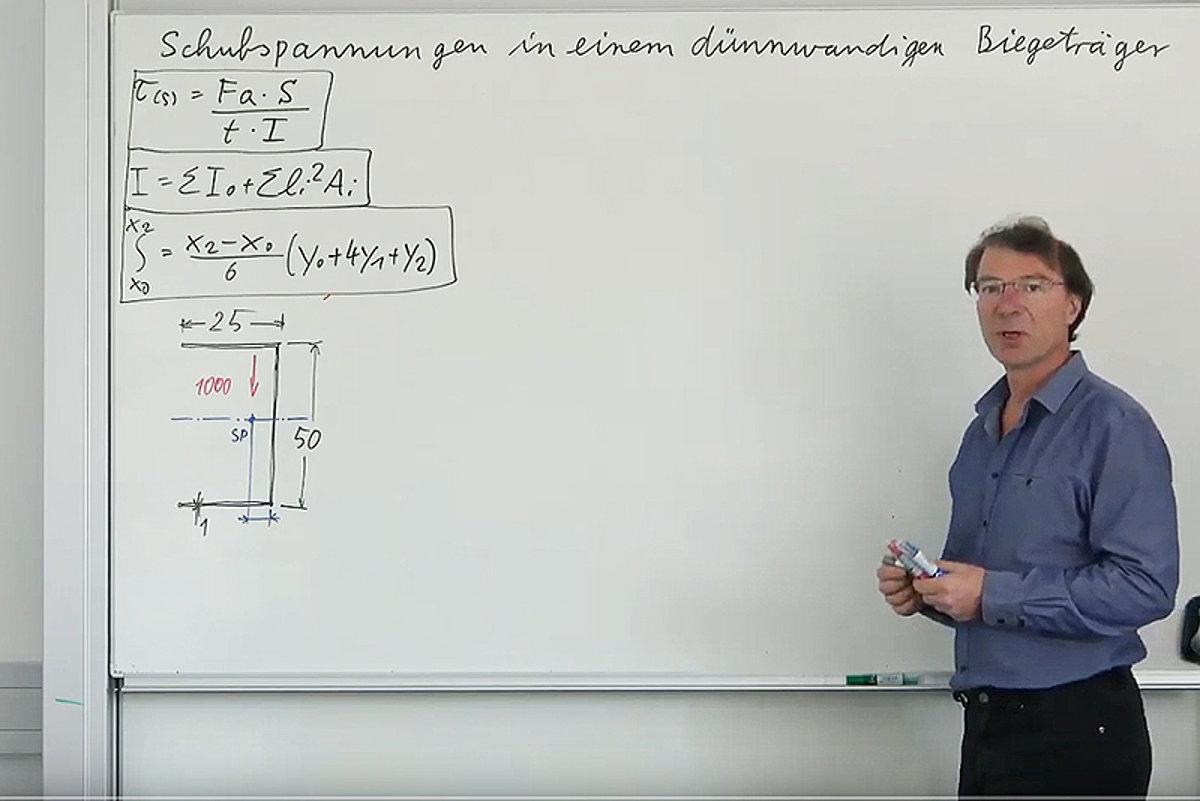 Schubspannungen in einem dünnwandigen Biegeträger
τ(s) = Fa · S / t · I
I = ΣI₀ + Σlᵢ²Aᵢ
x₂
∫ = x₂-x₀ / 6 (y₀+4y₁+y₂)
x₀
25
1000
SP
50
1